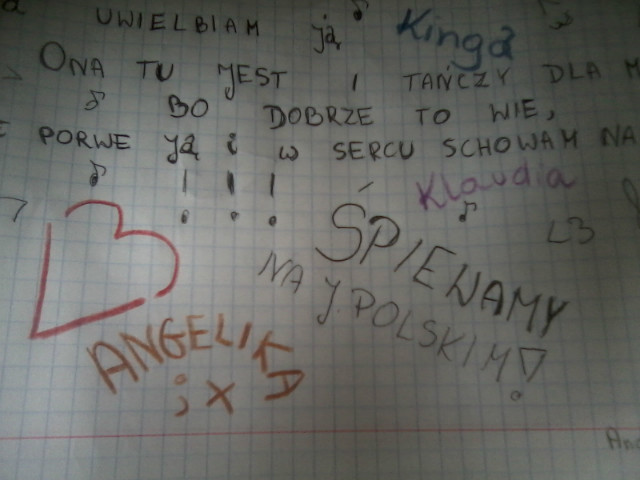 UWIELBIAM ją Kinga
ONA TU JEST I TAŃCZY DLA M
BO DOBRZE TO WIE,
E PORWE JĄ i w SERCU SCHOWAM NA
! ! !
Klaudia
L3
ŚPIEWAMY
NA J.POLSKIM!
ANGELIKA
;x